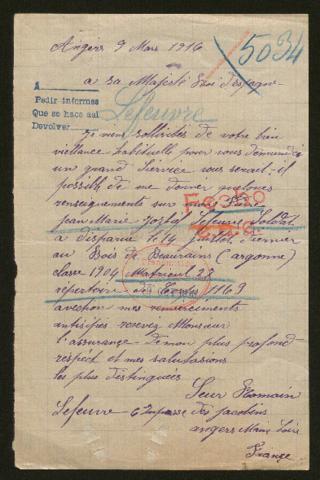 Angers 9 Mars 1916
5034
a sa Majesté Roi d'espagne
A
Pedir informes
Que se hace así
Devolver
Lefeuvre
Je viens solliciter de votre bien
veillance habituelle pour vous demander
un grand service vous serait-il
possible de me donner quelques
renseignements sur mon
Fecho
Jean Marie Lefeuvre Soldat
a disparue le 14 juillet dernier
au Bois de Beaurains (argonne)
classe 1906 Matricul 22
répertoire du Corps 1169
avec tion mes remerciments
antisipés recevez Monsieur
l'assurance de mon plus profond
respect et mes salutasions
les plus distinguées
Leur Romain
Lefeuvre 6 Impasse des jacobins
angers Maine Loire
France